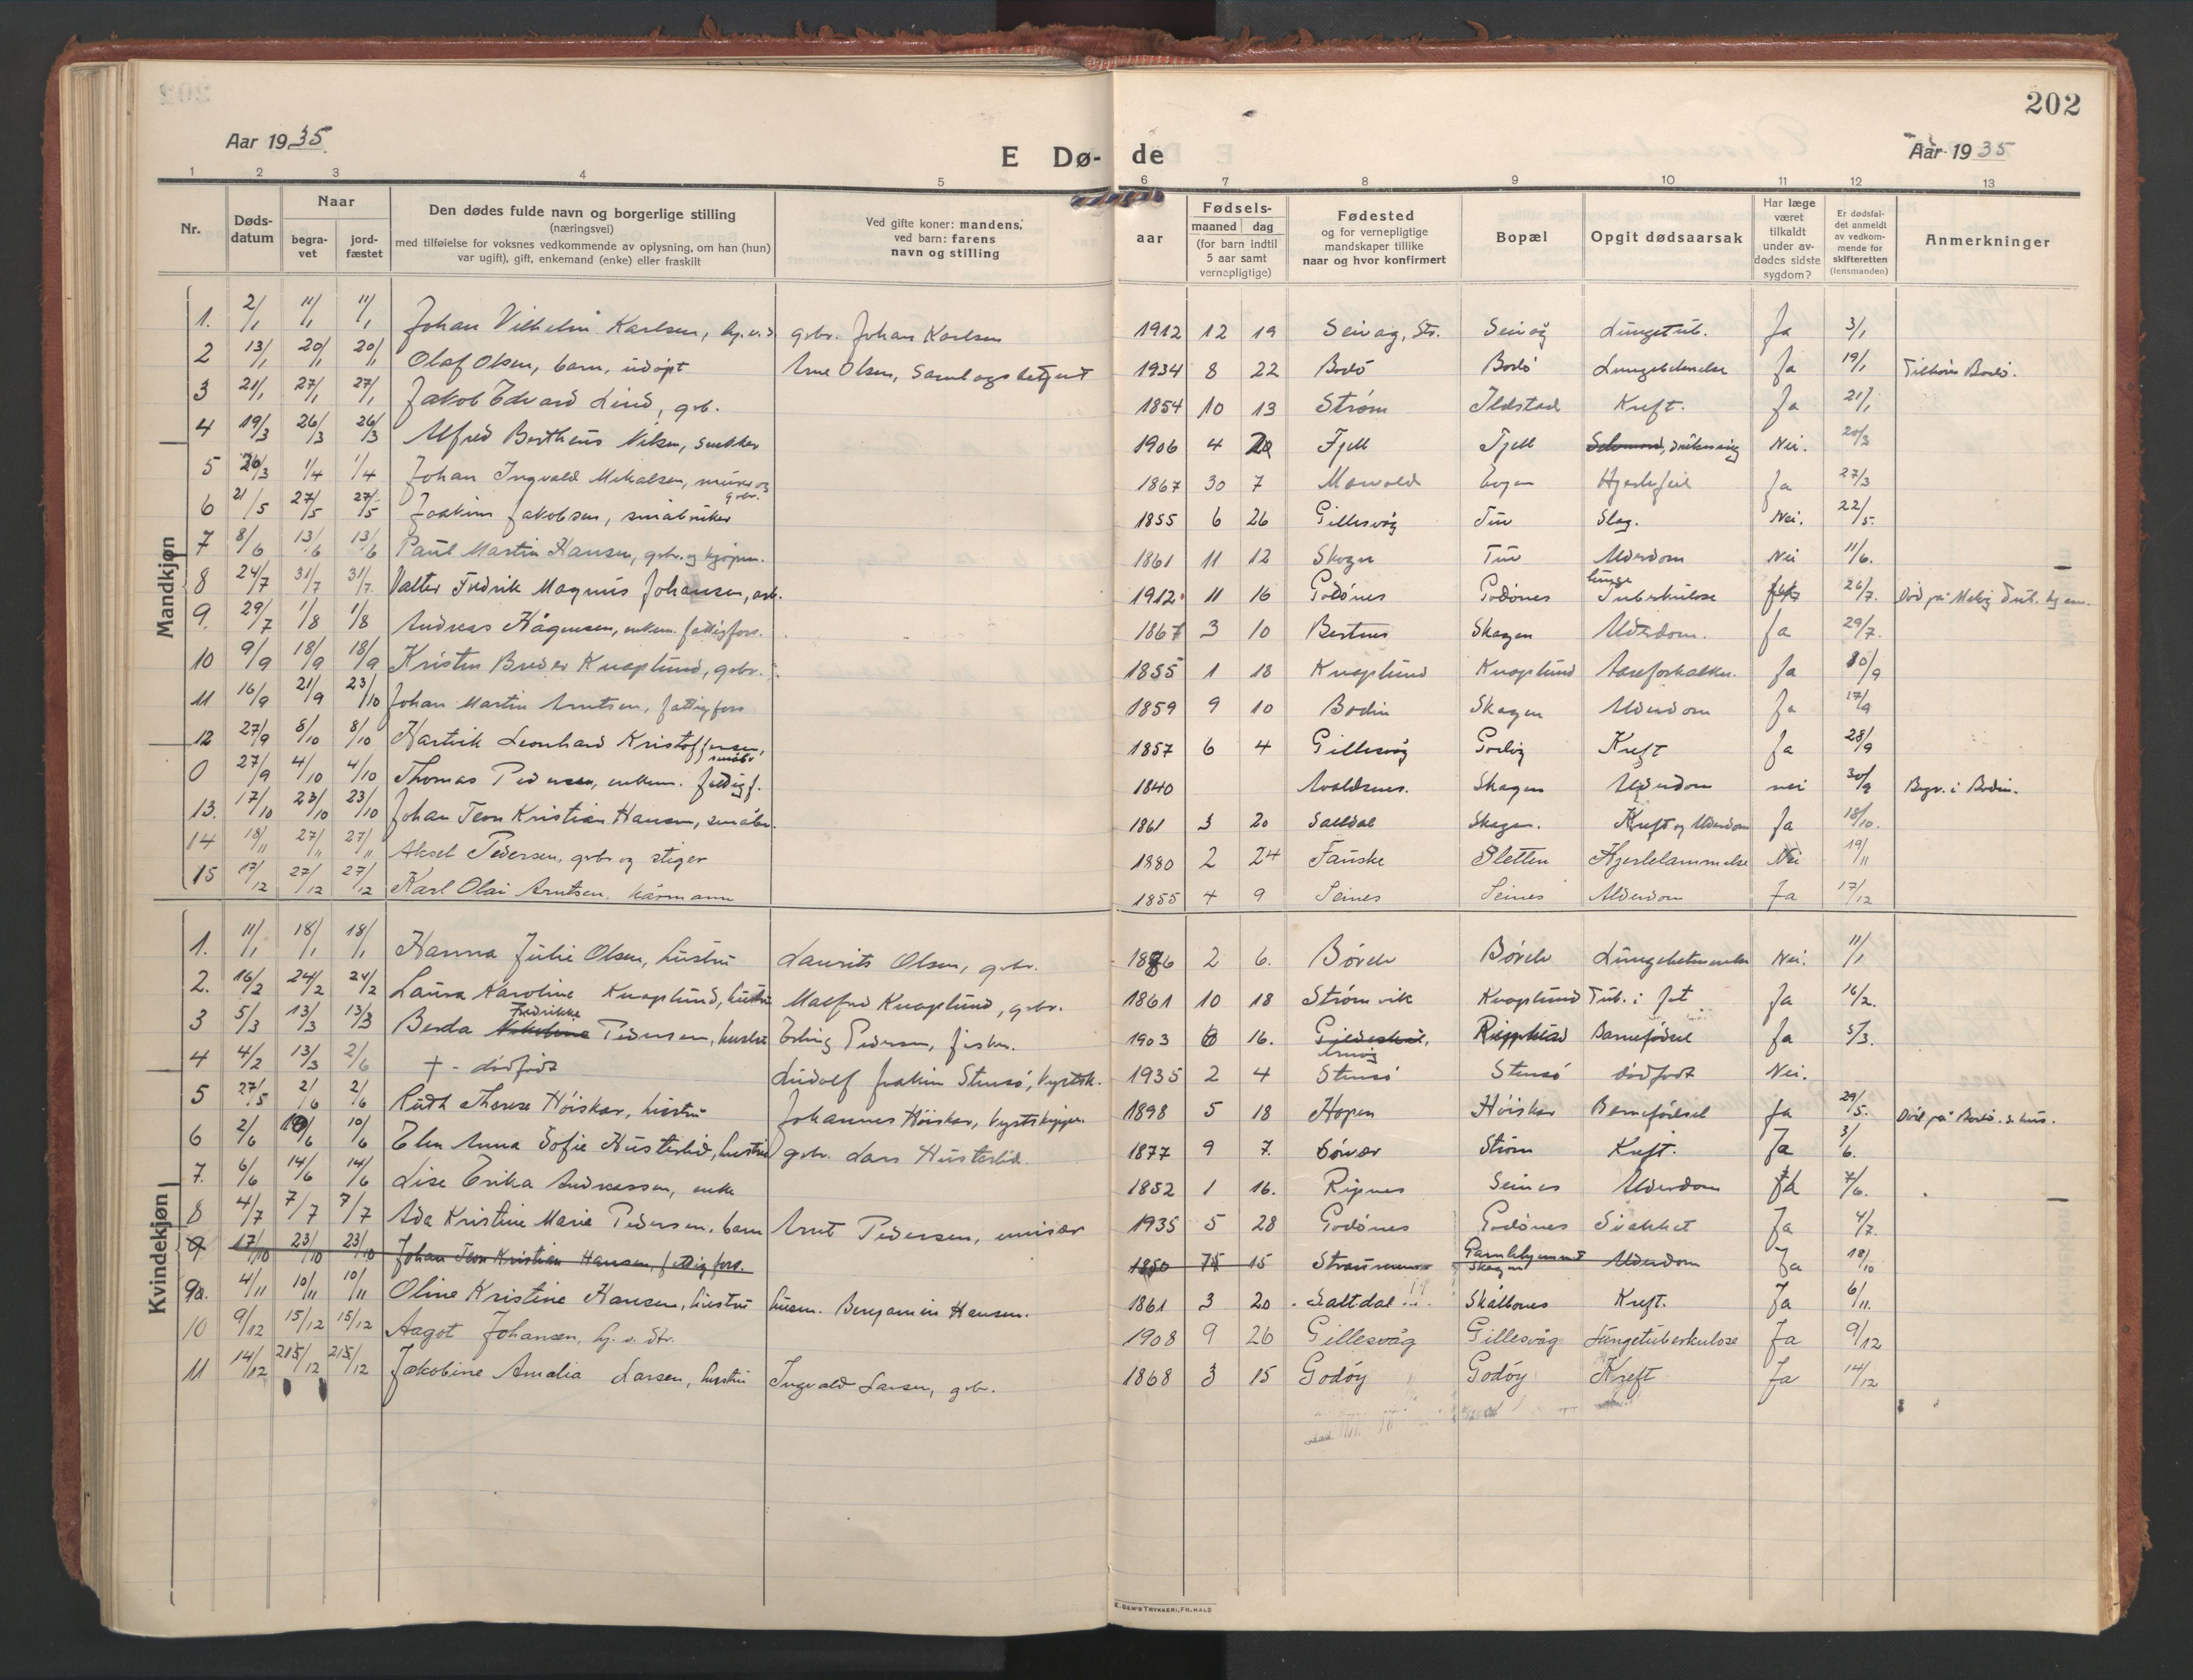 202
Aar 1935
E Dø-de
Aar 1935
1 2 3 4 5 6 7 8 9 10 11 12 13
Nr.
Døds-datum
Naar
begra-vet
jord-fæstet
Den dødes fulde navn og borgerlige stilling
(næringsvei)
med tilføielse for voksnes vedkommende av oplysning, om han (hun)
var ugift), gift, enkemand (enke) eller fraskilt
Ved gifte koner: mandens,
ved barn: farens
navn og stilling
aar
Fødsels-
maaned dag
(for barn indtil
5 aar samt
vernepligtige)
Fødested
og for vernepligtige
mandskaper tillike
naar og hvor konfirmert
Bopæl
Opgit dødsaarsak
Har læge
været
tilkaldt
under av-
dødes sidste
sygdom?
Er dødsfal-
det anmeldt
av vedkom-
mende for
skifteretten
(lensmanden)
Anmerkninger
Mandkjøn
1. 2/1 11/1 11/1 Johan Vilhelm Karlsen, gbr. Johan Karlsen 1912 12 19 Seivåg, Str. Seivåg Lungetub. Ja 3/1
2 13/1 20/1 20/1 Olaf Olsen, barn, udøpt Arne Olsen, Samlagsbetjent 1934 8 22 Bodö Bodö Lungebetendelse Ja 19/1 Tilhörer Bodö.
3 21/1 27/1 27/1 Jakob Edvard Lind, gbr. 1854 10 13 Strøm Ildstad Kreft. Ja 21/1
4 19/3 26/3 26/3 Alfred Bertheus Nilsen, snekker 1906 4 20 Fjell Fjell Selvmord, drukning Nei. 20/3
5 26/3 1/4 1/4 Johan Ingvald Mikalsen, murer og gbr. 1867 30 7 Hjertefeil Ja 27/3
6 21/5 27/5 27/5 Joakim Jakobsen, småbruker 1855 6 26 Gillesvåg Tuv Slag. Nei. 22/5
7 8/6 13/6 13/6 Paul Martin Hansen, gbr. og kjøpm. 1861 11 12 Skogen Tuv Alderdom Nei 11/6.
8 24/7 31/7 31/7 Valter Fredrik Magnus Johansen, arb. 1912 11 16 Godönes Godönes lunge Tuberkulose 26/7. Död på
9. 29/7 1/8 1/8 Andreas Hågensen, enkem. fattigfors. 1867 3 10 Bertnes Skagen Alderdom. Ja 29/7.
10 9/9 18/9 18/9 Kristen Breder Knaplund, gbr. 1855 1 18 Knaplund Knaplund Aareforkalkn. Ja 10/9
11 16/9 21/9 23/10 Johan Martin Arntsen, fattigfors 1859 9 10 Bodin Skagen Alderdom Ja 17/9
12 27/9 8/10 8/10 Hartvik Leonhard Kristoffersen, småbr 1857 6 4 Gillesvåg Kreft Ja 28/9
0 27/9 4/10 4/10 Thomas Pedersen, enkem. fattigf. 1840 Avaldsnes. Skagen Alderdom nei 30/9 Begr. i Bodin.
13. 17/10 23/10 23/10 Johan Teon Kristian Hansen, småbr. 1861 3 20 Saltdal Skagen. Kreft og Alderdom Ja 18/10.
14 18/11 27/11 27/11 Aksel Pedersen, gbr og stiger 1880 2 24 Fauske Sletten Hjertelammelse Nei 19/11
15 17/12 27/12 27/12 Karl Olai Arntsen, kårmann 1855 4 9 Seines Seines Alderdom Ja 17/12
Kvindekjøn
1. 11/1 18/1 18/1 Hanna Julie Olsen, hustru Laurits Olsen, gbr. 1876 2 6. Börelv Börelv Lungebetennelse Nei. 11/1
2. 16/2 24/2 24/2 Laura Karoline Knaplund, hustru Malfred Knaplund, gbr. 1861 10 18 Strømvik Knaplund Tub. i fot Ja 16/2.
3 5/3 13/3 13/3 Berda Fredrikke Pedersen, hustru Erling Pedersen, fisker. 1903 6 16. Gildeskål, Barnefödsel Ja 5/3.
4 4/2 13/3 2/6 † - dødfødt Ludolf Joakim Stensö, 1935 2 4 Stensö Stensö dödfödt Nei.
5 27/5 2/6 2/6 Ruth Therese Höiskar, hustru Johannes Höiskar, 1898 5 18 Hopen Höiskar Barnefödsel Ja 29/5. Död på Bodö. s. hus.
6 2/6 10/6 10/6 Elen Anna Sofie Husterlid, hustru gbr. Lars Husterlid. 1877 9 7. Sörvær Strøm Kreft. Ja 3/6.
7. 6/6 14/6 14/6 Lise Erika Andreassen, enke 1852 1 16. Ripnes Seines Alderdom Ja 7/6.
8 4/7 7/7 7/7 Ada Kristine Marie Pedersen, barn Arnt Pedersen, emisær 1935 5 28 Godönes Godönes Svakhet Ja 4/7.
9. 17/10 23/10 23/10 Johan Teon Kristian Hansen, fattigfors. 1850 15 Gamlehjemmet Skagen Alderdom Ja 18/10
9a. 4/11 10/11 10/11 Oline Kristine Hansen, hustru husm. Benjamin Hansen. 1861 3 20 Saltdal Skålbones Kreft. Ja 6/11.
10 9/12 15/12 15/12 Aagot Johansen, hj. v. str. 1908 9 26 Gillesvåg Gillesvåg Lungetuberkulose Ja 9/12
11 14/12 215/12 215/12 Jakobine Amalia Larsen, hustru Ingvald Larsen, gbr. 1868 3 15 Godöy Godöy Kreft Ja 14/12
E. SEM'S TRYKKERI, FR.HALD